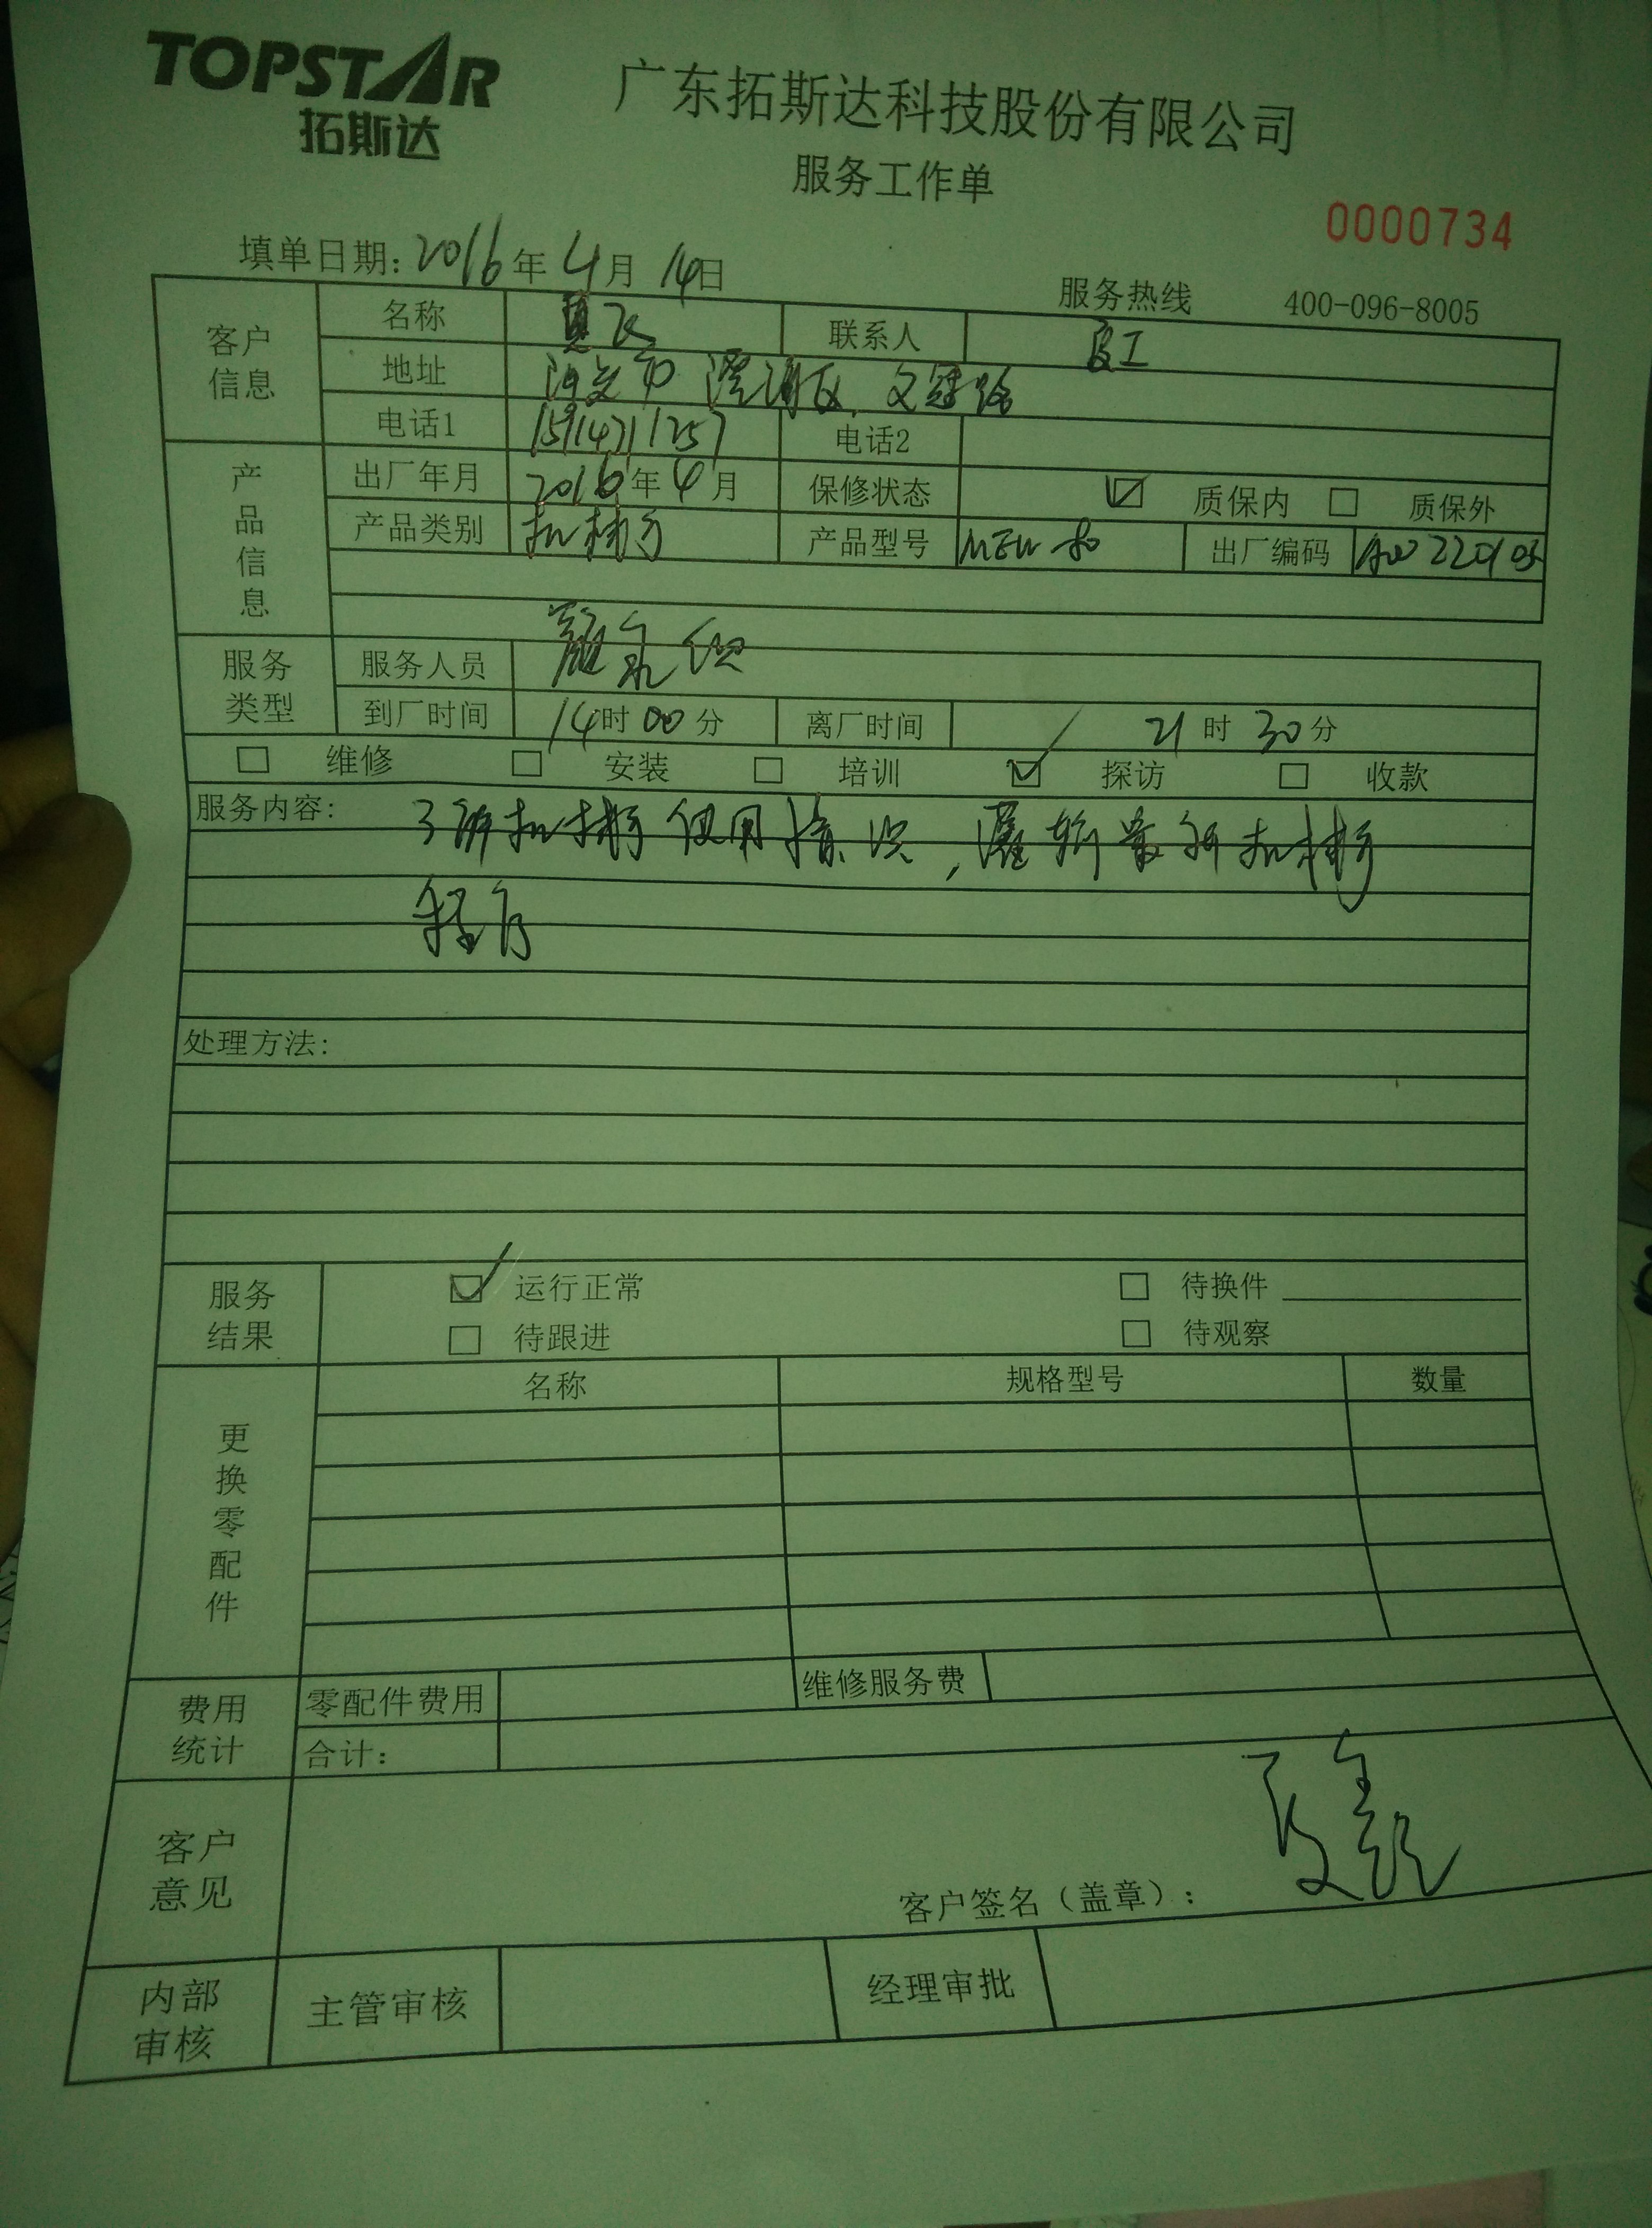 TOPSTAR
拓斯达
广东拓斯达科技股份有限公司
服务工作单
0000734
填单日期：2016年4月14日
服务热线 400-096-8005
客户信息
名称 联系人
地址 文冠路
电话1 15914711257 电话2
产品信息
出厂年月 2016年4月 保修状态 ☑ 质保内 □ 质保外
产品类别 机械手 产品型号 出厂编码
服务类型
服务人员
到厂时间 14时00分 离厂时间 21时30分
□ 维修 □ 安装 □ 培训 ☑ 探访 □ 收款
服务内容： 了解机械手使用情况，灌输最新机械手
程序
处理方法：
服务结果
☑ 运行正常 □ 待换件
□ 待跟进 □ 待观察
更换零配件
名称 规格型号 数量
费用统计
零配件费用 维修服务费
合计：
客户意见
客户签名（盖章）：
内部审核
主管审核 经理审批